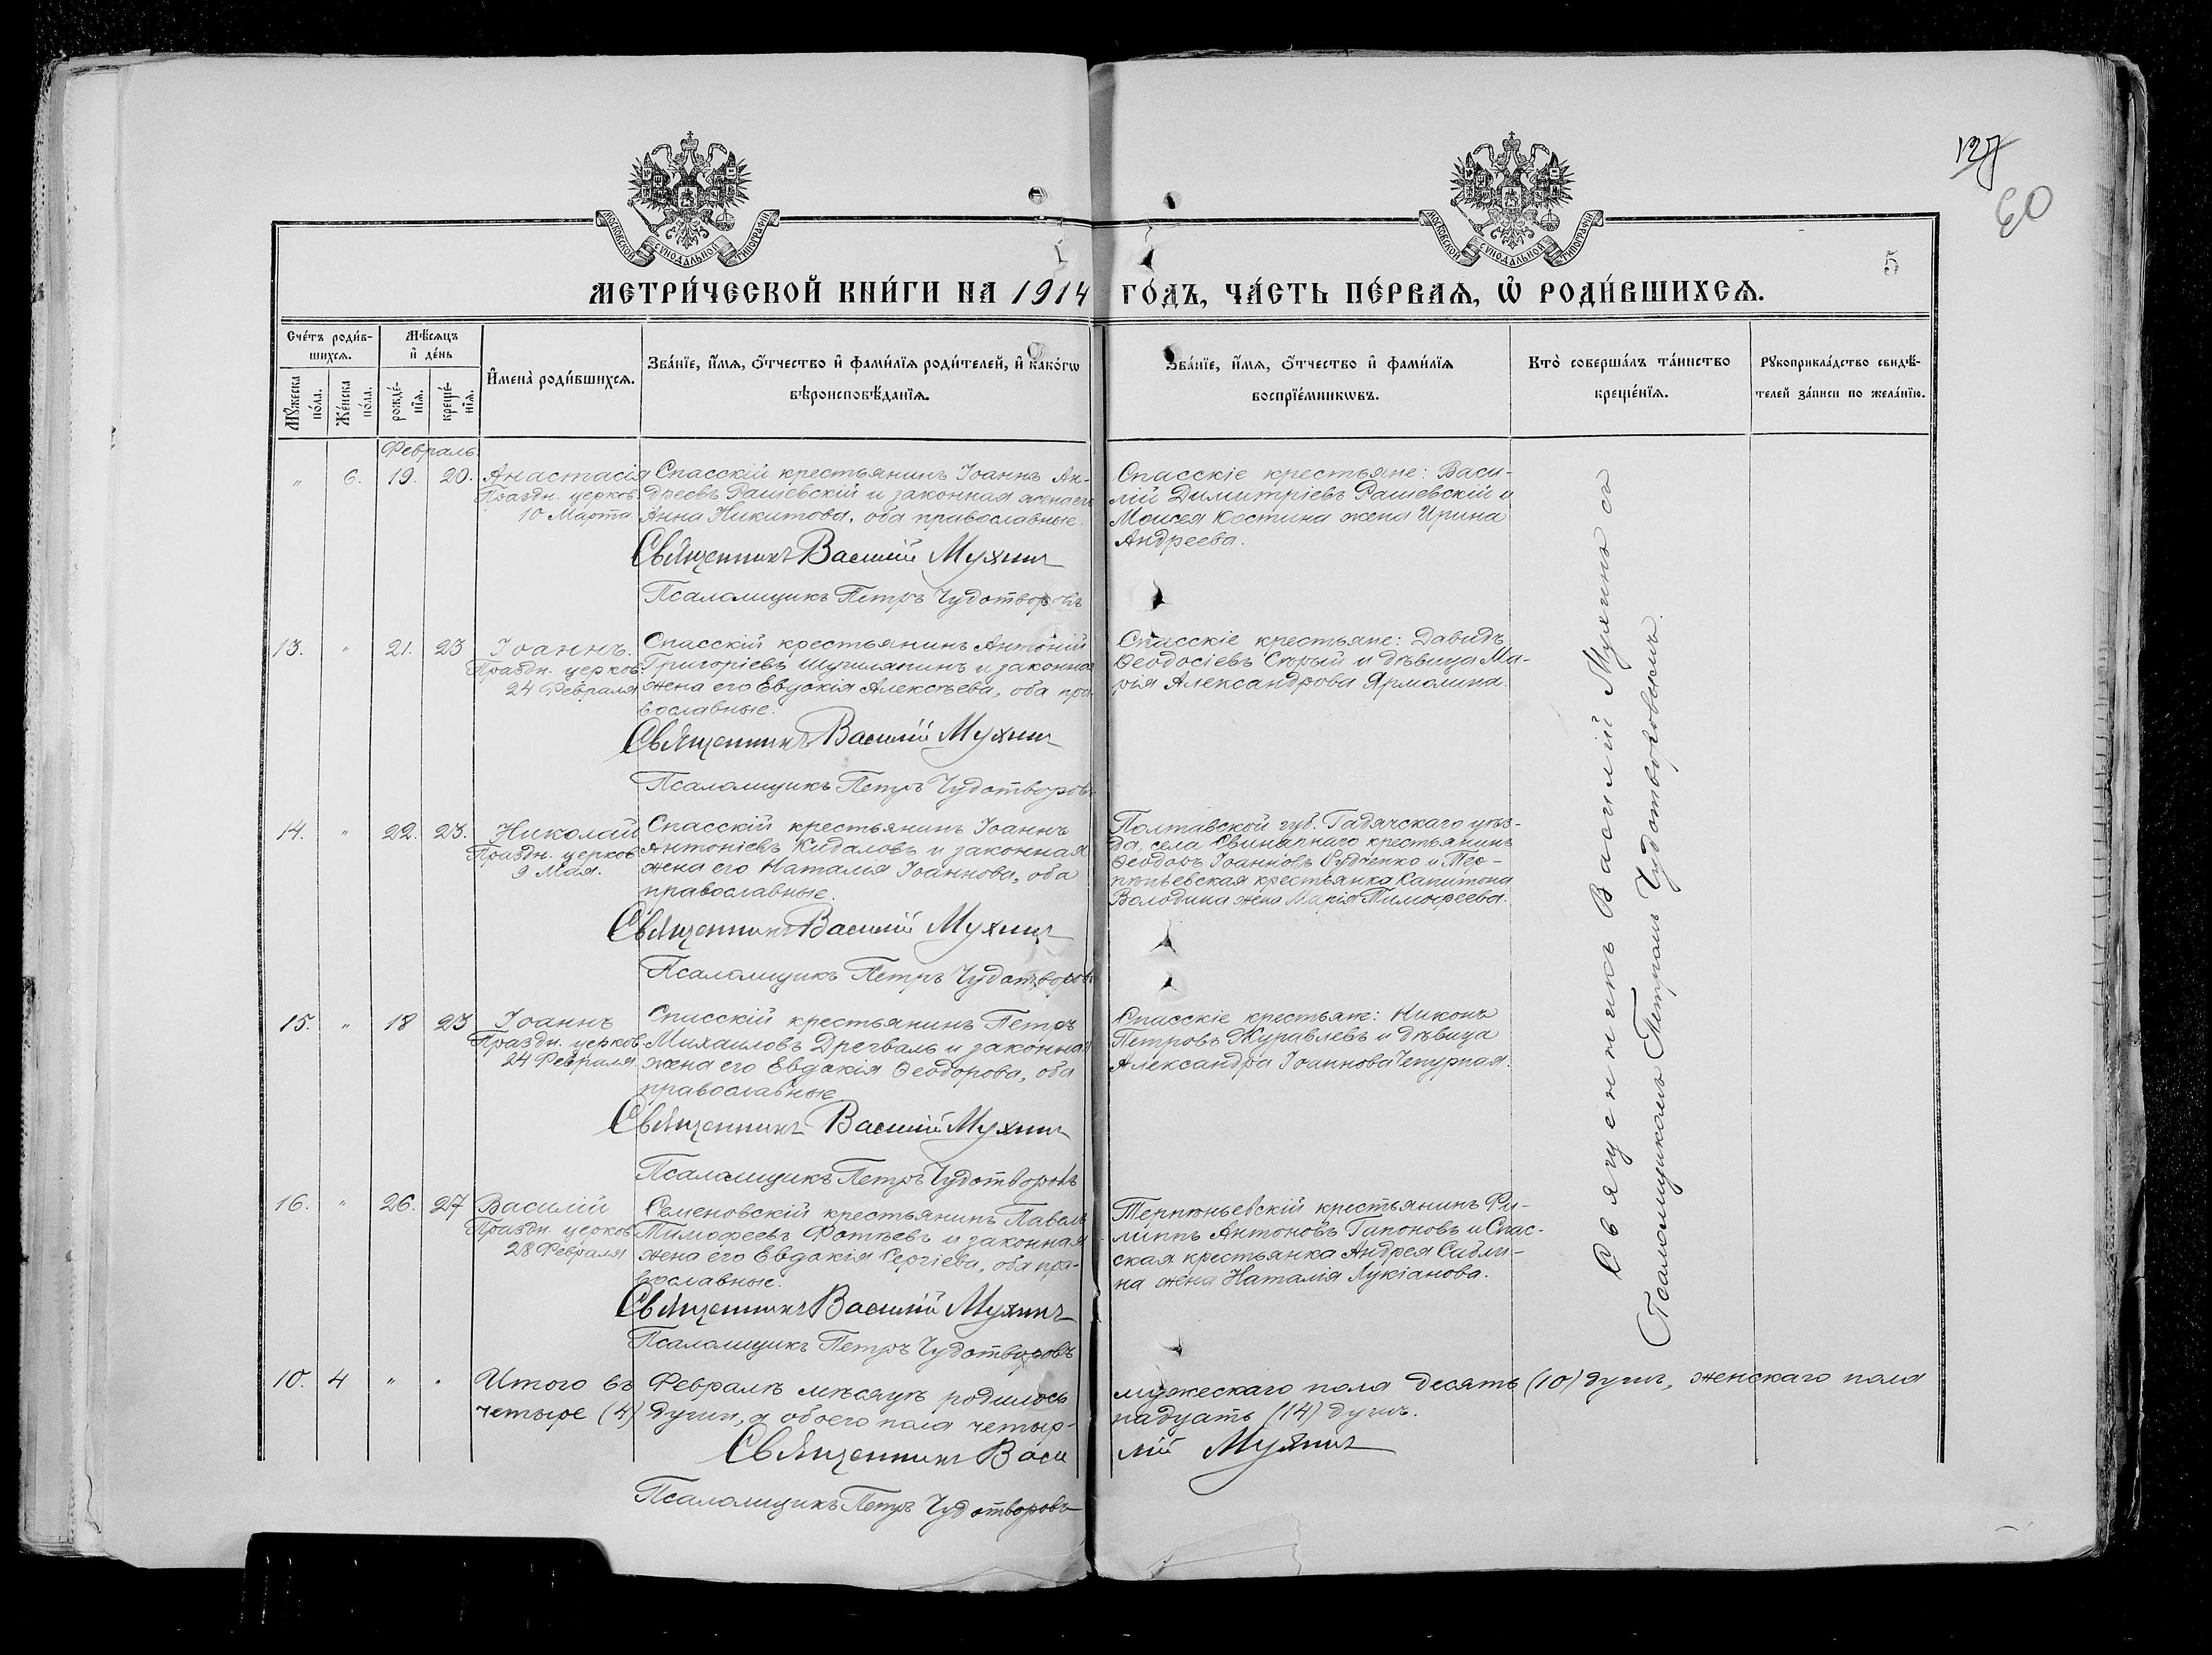 127
60
МОСКОВСКОЙ СѴНОДАЛЬНОЙ ТИПОГРАФІИ
МОСКОВСКОЙ СѴНОДАЛЬНОЙ ТИПОГРАФІИ
5
МЕТРИ́ЧЕСКОЙ КНИ́ГИ НА 1914 ГО́ДЪ, ЧА́СТЬ ПЕ́РВАѦ, Ѡ҆ РОДИ́ВШИХСѦ.
Сче́тъ роди́в-
шихсѧ.
Мꙋ́жеска по́ла.
Же́нска по́ла.
Мѣ́сѧцъ
и҆ де́нь
рожде́-
нїѧ.
креще́-
нїѧ.
И҆мена̀ роди́вшихсѧ.
Зва́нїе, и҆́мѧ, ѻ҆́тчество и҆ фами́лїѧ роди́телей, и҆ како́гѡ
вѣроисповѣ́данїѧ.
Зва́нїе, и҆́мѧ, ѻ҆́тчество и҆ фами́лїѧ
воспрїе́мникѡвъ.
Кто̀ соверша́лъ та́инство
креще́нїѧ.
Рꙋкоприкла́дство свидѣ́-
телей за́писи по жела́нїю.
Февраль
" 6. 19. 20. Анастасія
Праздн. церков.
10 Марта
Спасскій крестьянинъ Іоаннъ Ан-
дреевъ Рашевскій и законная жена его
Анна Никитова, оба православные.
Священникъ Василій Мухинъ
Псаломщикъ Петръ Чудотворовъ
Спасскіе крестьяне: Васи-
лій Димитріевъ Рашевскій и
Моисея Костина жена Ирина
Андреева.
13. " 21. 23 Іоаннъ.
Праздн. церков.
24 Февраля
Спасскій крестьянинъ Антоній
Григоріевъ Шугилянинъ и законная
жена его Евдокія Алексѣева, оба пра-
вославные.
Священникъ Василій Мухинъ
Псаломщикъ Петръ Чудотворовъ
Спасскіе крестьяне: Давидъ
Ѳеодосіевъ Сѣрый и дѣвица Ма-
рія Александрова Ярмолина.
14. " 22. 23. Николай
Праздн. церков
9 Мая.
Спасскій крестьянинъ Іоаннъ
Антоніевъ Кидаловъ и законная
жена его Наталія Іоаннова, оба
православные.
Священникъ Василій Мухинъ
Псаломщикъ Петръ Чудотворовъ
Полтавской губ. Гадячскаго уѣз-
да, села Свинарнаго крестьянинъ
Ѳеодоръ Іоанновъ Рудченко и Тер-
пѣньевская крестьянка Капитона
Володина жена Марія Тимофеева.
15. " 18 23 Іоаннъ
Праздн. церков.
24 Февраля
Спасскій крестьянинъ Петръ
Михаиловъ Дрегваль и законная
жена его Евдокія Ѳеодорова, оба
православные
Священникъ Василій Мухинъ
Псаломщикъ Петръ Чудотворовъ
Спасскіе крестьяне: Никонъ
Петровъ Журавлевъ и дѣвица
Александра Іоаннова Чепурная.
16. " 26. 27 Василій
Праздн. церков
28 Февраля
Семеновскій крестьянинъ Павелъ
Тимофеевъ Фотѣевъ и законная
жена его Евдокія Сергіева, оба пра-
вославные.
Священникъ Василій Мухинъ
Псаломщикъ Петръ Чудотворовъ
Терпѣньевскій крестьянинъ Фи-
липпъ Антоновъ Гапоновъ и Спас-
ская крестьянка Андрея Сабли-
на жена Наталія Лукіанова.
Священникъ Василій Мухинъ съ
Псаломщикомъ Петромъ Чудотворовымъ.
10. 4 " " Итого въ Февралѣ мѣсяцѣ родилось мужескаго пола десять (10) душъ, женскаго пола
четыре (4) души, а обоего пола четыр-надцать (14) душъ.
Священникъ Василій Мухинъ
Псаломщикъ Петръ Чудотворовъ